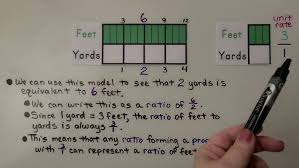 3 6 9 12
unit rate
Feet
Feet
3
Yards
Yards
1
1 2 3 4
We can use this model to see that 2 yards is
equivalent to 6 feet.
We can write this as a ratio of 6/2.
Since 1 yard = 3 feet, the ratio of feet to
yards is always 3/1.
This means that any ratio forming a
with 3/1 can represent a ratio of feet